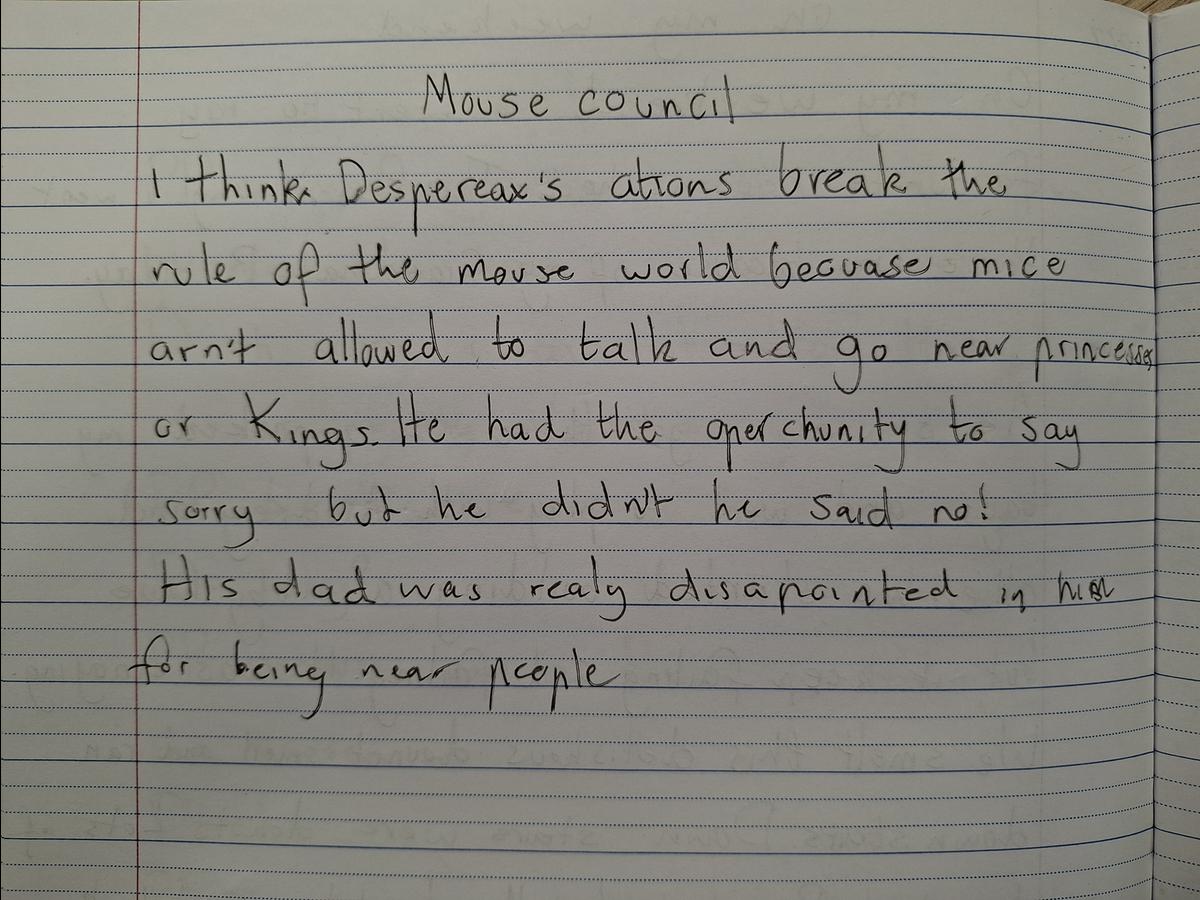 Mouse council
I think Despereax's ations break the
rule of the mouse world becuase mice
arn't allowed to talk and go near princesses
or Kings. He had the operchunity to say
sorry but he didn't he said no!
His dad was realy disapointed in him
for being near people